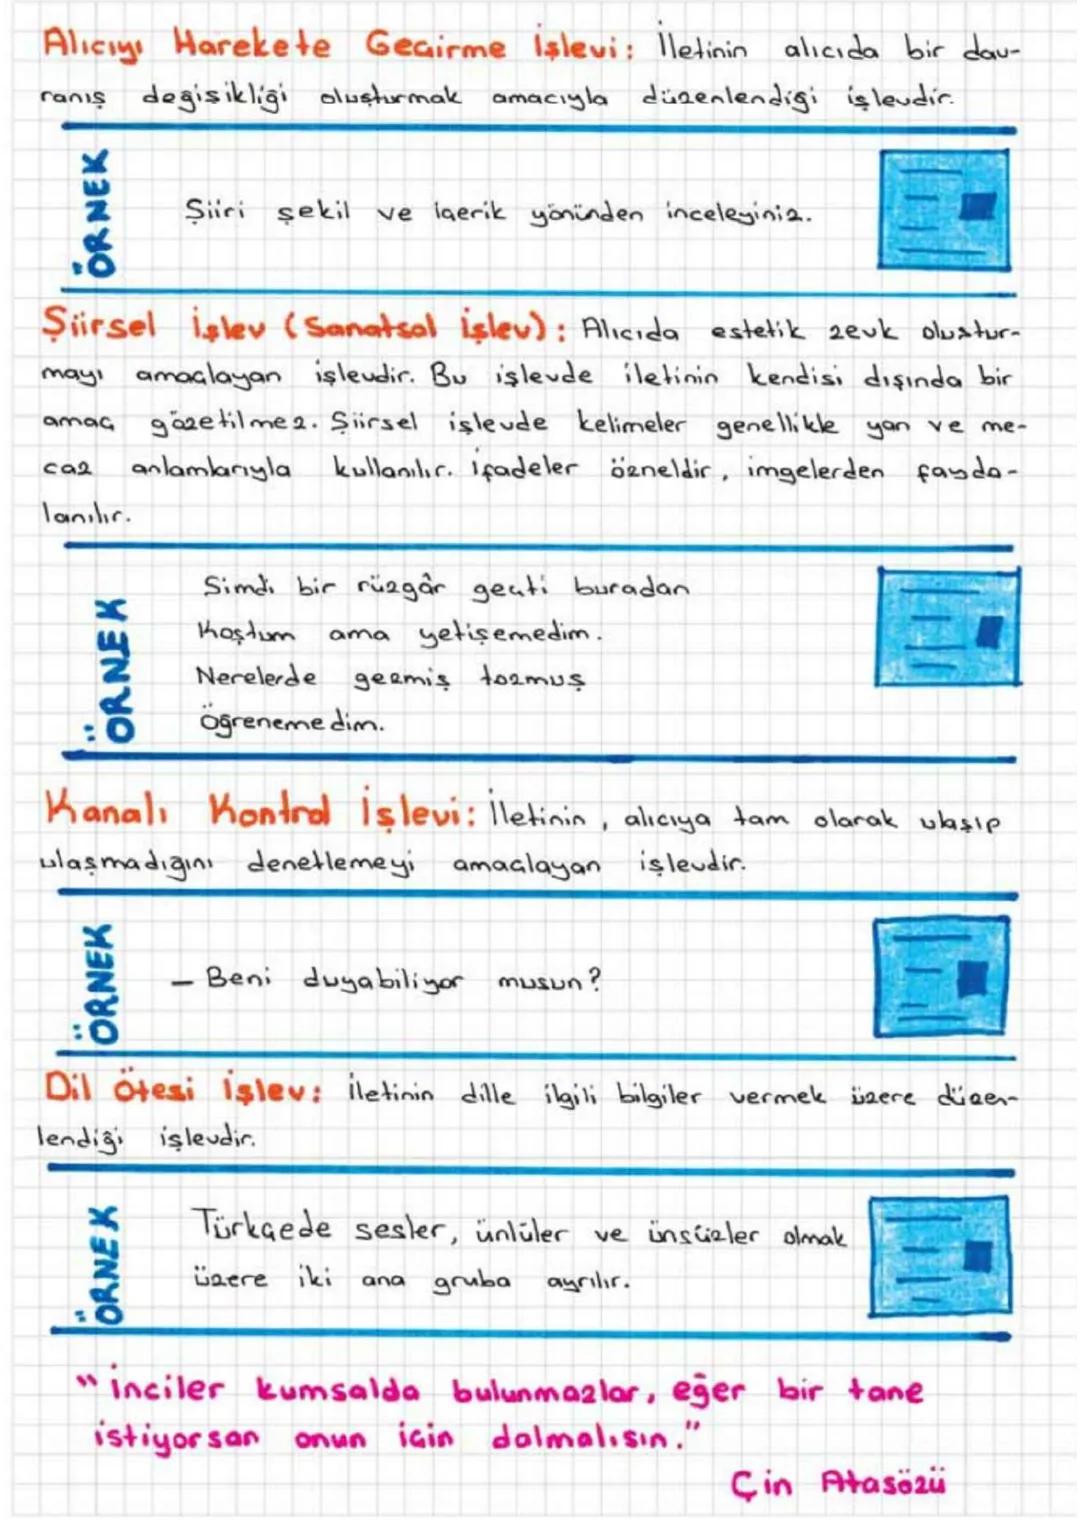 Alıcıyı Harekete Geçirme İşlevi: İletinin alıcıda bir dav-
ranış değişikliği oluşturmak amacıyla düzenlendiği işlevdir.
ÖRNEK
Şiiri şekil ve içerik yönünden inceleyiniz.
Şiirsel İşlev (Sanatsal İşlev): Alıcıda estetik zevk oluştur-
mayı amaçlayan işlevdir. Bu işlevde iletinin kendisi dışında bir
amaç gözetilmez. Şiirsel işlevde kelimeler genellikle yan ve me-
caz anlamlarıyla kullanılır. İfadeler özneldir, imgelerden fayda-
lanılır.
ÖRNEK
Simdi bir rüzgâr geçti buradan
Koştum ama yetişemedim.
Nerelerde gezmiş tozmuş
Öğrenemedim.
Kanalı Kontrol İşlevi: İletinin, alıcıya tam olarak ulaşıp
ulaşmadığını denetlemeyi amaçlayan işlevdir.
ÖRNEK
– Beni duyabiliyor musun?
Dil Ötesi İşlev: İletinin dille ilgili bilgiler vermek üzere düzen-
lendiği işlevdir.
ÖRNEK
Türkçede sesler, ünlüler ve ünsüzler olmak
üzere iki ana gruba ayrılır.
"İnciler kumsalda bulunmazlar, eğer bir tane
istiyorsan onun için dalmalısın."
Çin Atasözü